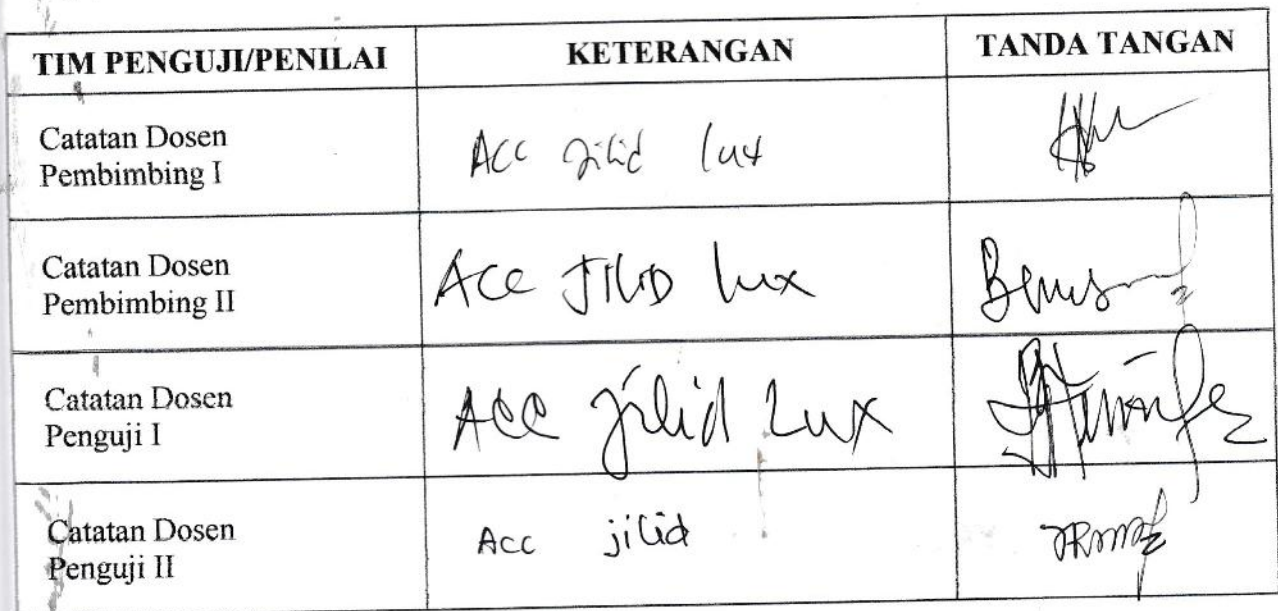 TIM PENGUJI/PENILAI KETERANGAN TANDA TANGAN
Catatan Dosen
Pembimbing I
Acc jilid lux
Catatan Dosen
Pembimbing II
Acc JILID lux
Catatan Dosen
Penguji I
Acc jilid Lux
Catatan Dosen
Penguji II
Acc jilid